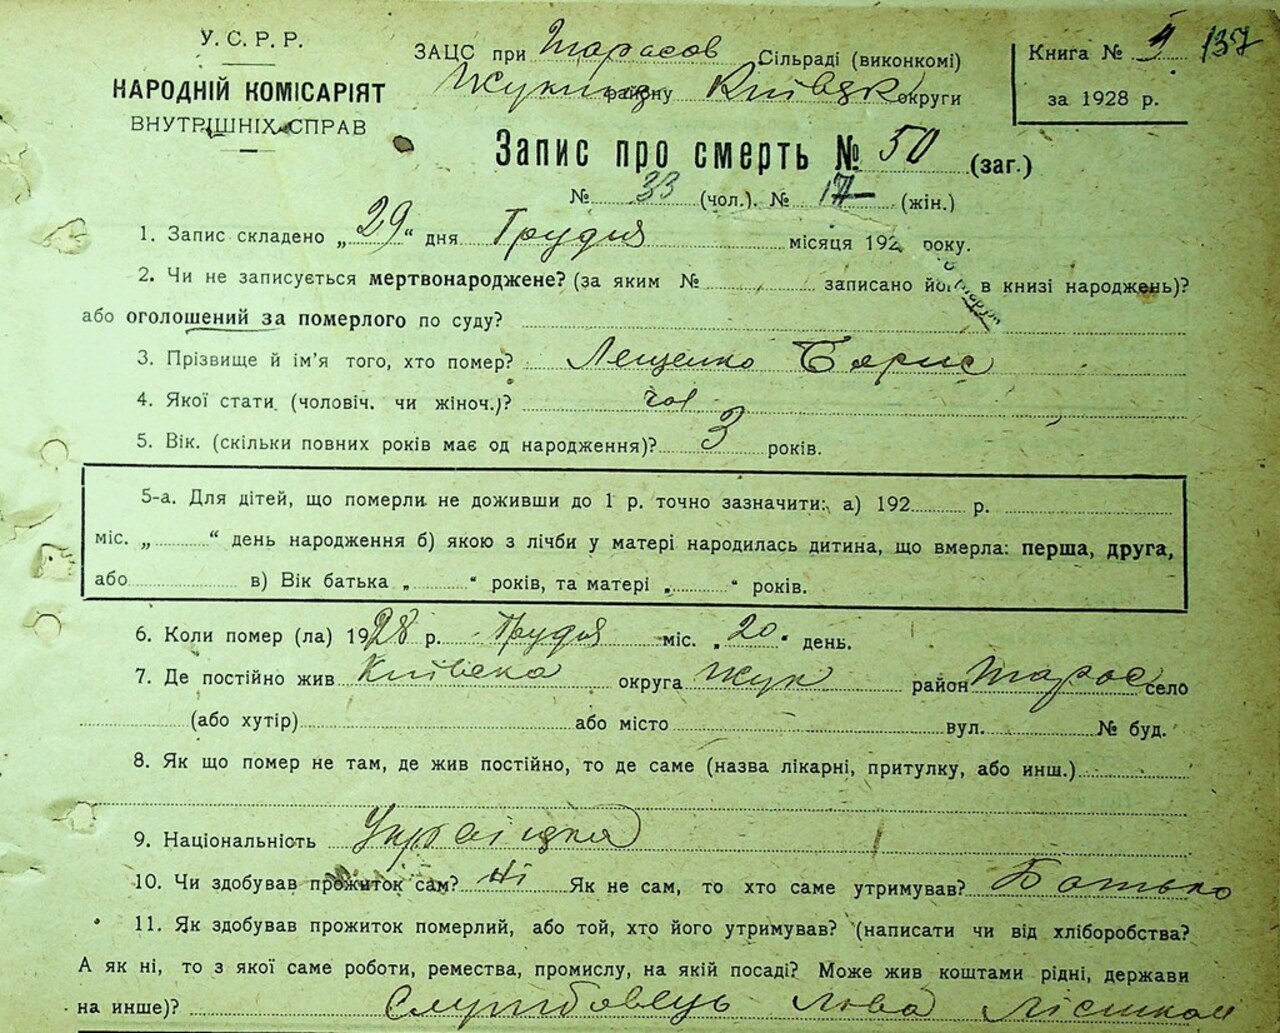 У. С. Р. Р.
НАРОДНІЙ КОМІСАРІЯТ
ВНУТРІШНІХ СПРАВ
ЗАЦС при Тарасов Сільраді (виконкомі)
району Київськ округи
Книга №
за 1928 р.
137
Запис про смерть № 50 (заг.)
№ 33 (чол.). № 17 (жін.)
1. Запис складено „ 29 “ дня Грудня місяця 192 року.
2. Чи не записується мертвонароджене? (за яким № записано його в книзі народжень)?
або оголошений за померлого по суду?
3. Прізвище й ім'я того, хто помер? Лещенко Борис
4. Якої стати (чоловіч. чи жіноч.)? чол
5. Вік. (скільки повних років має од народження)? 3 років.
5-а. Для дітей, що померли не доживши до 1 р. точно зазначити: а) 192 р.
міс. „ “ день народження б) якою з лічби у матері народилась дитина, що вмерла: перша, друга,
або в) Вік батька „ “ років, та матері „ “ років.
6. Коли помер (ла) 1928 р. Грудня міс. „ 20 “ день.
7. Де постійно жив Київська округа Жук район Тарас село
(або хутір) або місто вул. № буд.
8. Як що помер не там, де жив постійно, то де саме (назва лікарні, притулку, або инш.)
9. Національність
10. Чи здобував прожиток сам? ні Як не сам, то хто саме утримував? Батько
11. Як здобував прожиток померлий, або той, хто його утримував? (написати чи від хліборобства?
А як ні, то з якої саме роботи, ремества, промислу, на якій посаді? Може жив коштами рідні, держави
на инше)? Службовець